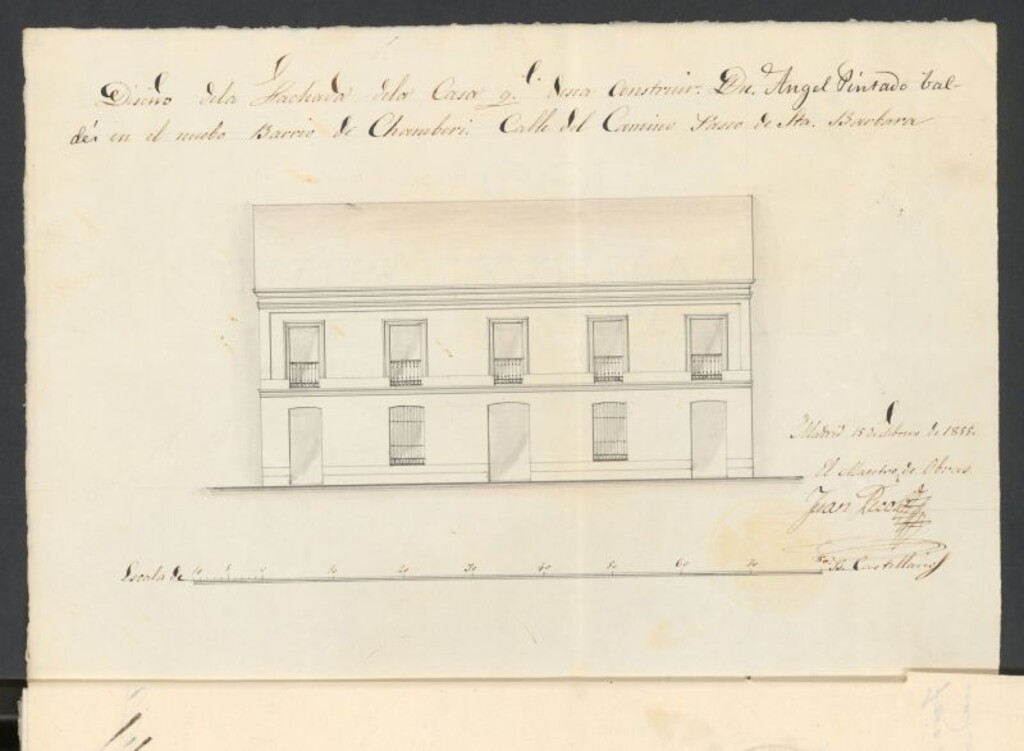 Diseño dela Fachada dela Casa q.e desea Construir. Dn. Angel Pintado bal-
dés en el nuebo Barrio de Chamberi. Calle del Camino Paseo de Sta. Barbara
Madrid 15 de Febrero de 1855.
El Maestro de Obras.
Juan
Escala de 10 5 0 10 20 30 40 50 60 70
B. Castellanos